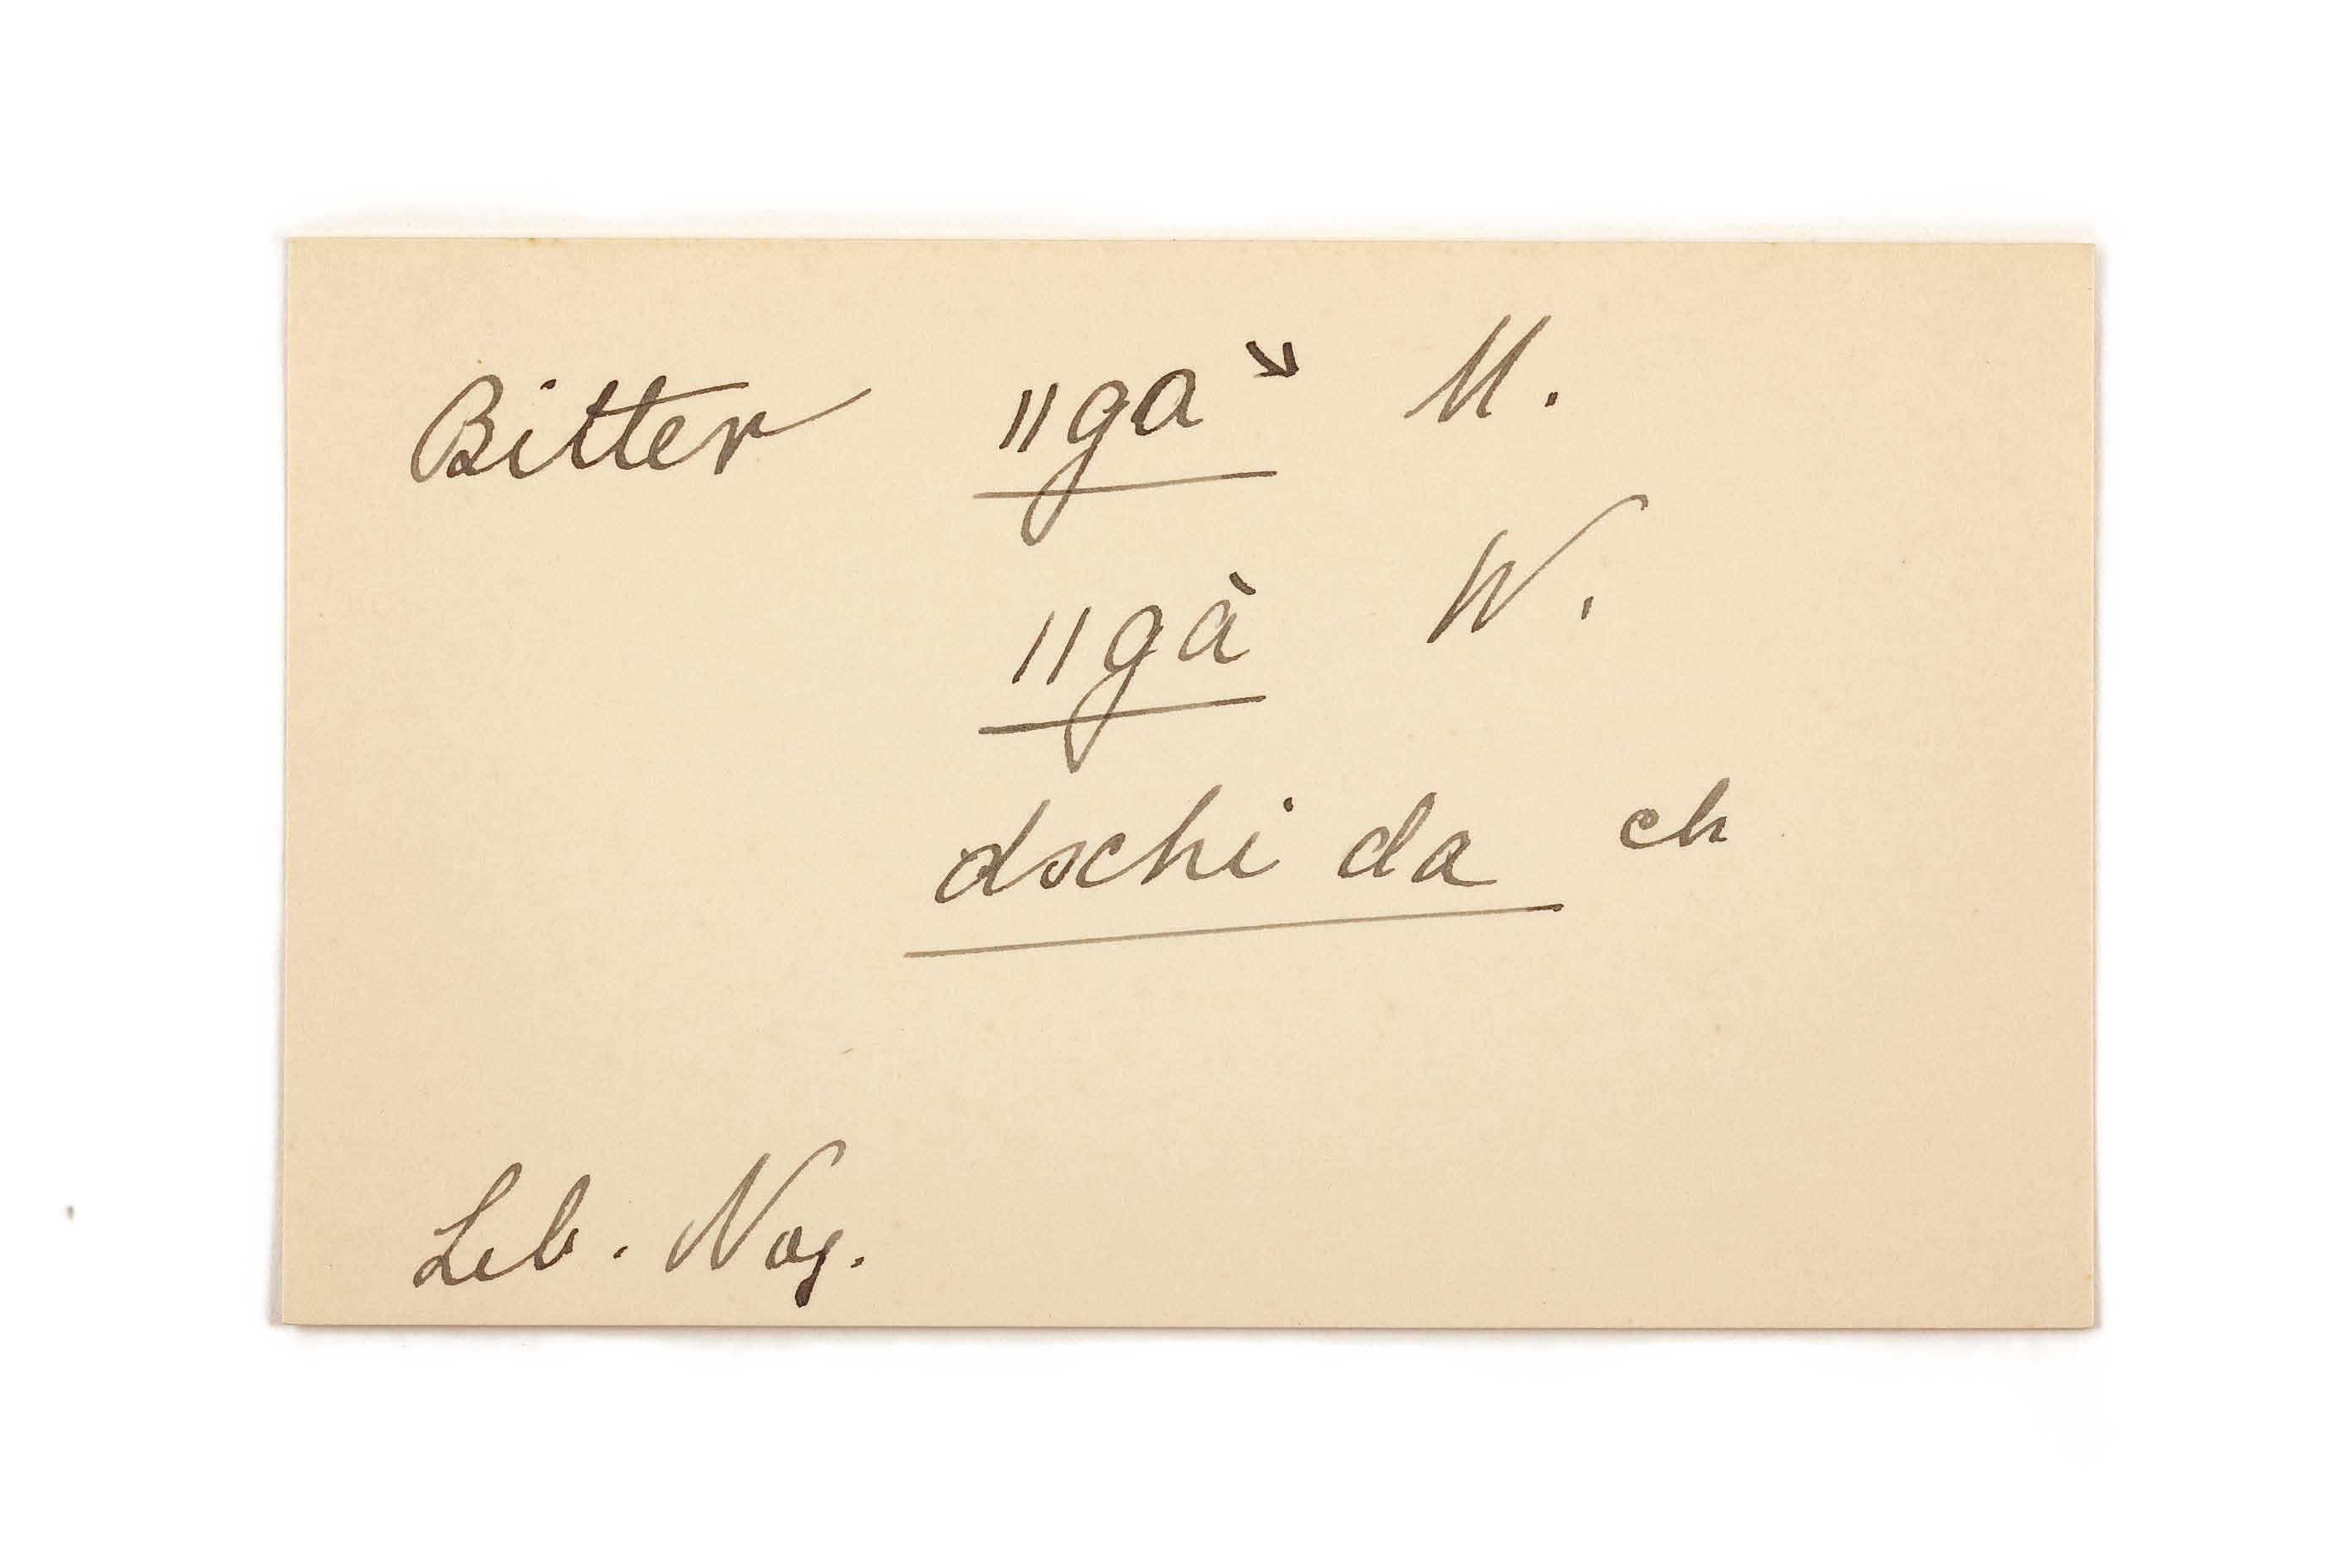 Bitter ǁga↘ M.
ǁgà W.
dschi da ch
Leb. Nog.